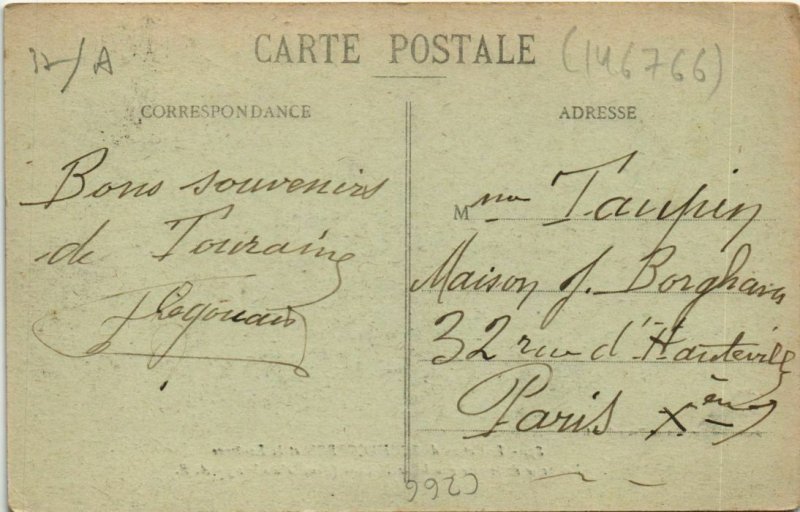 17/A
CARTE POSTALE
(146766)
CORRESPONDANCE
Bons souvenirs
de Touraine
ADRESSE
Mme Taupin
Maison J. Borghans
32 rue d'Hauteville
Paris Xème
C266